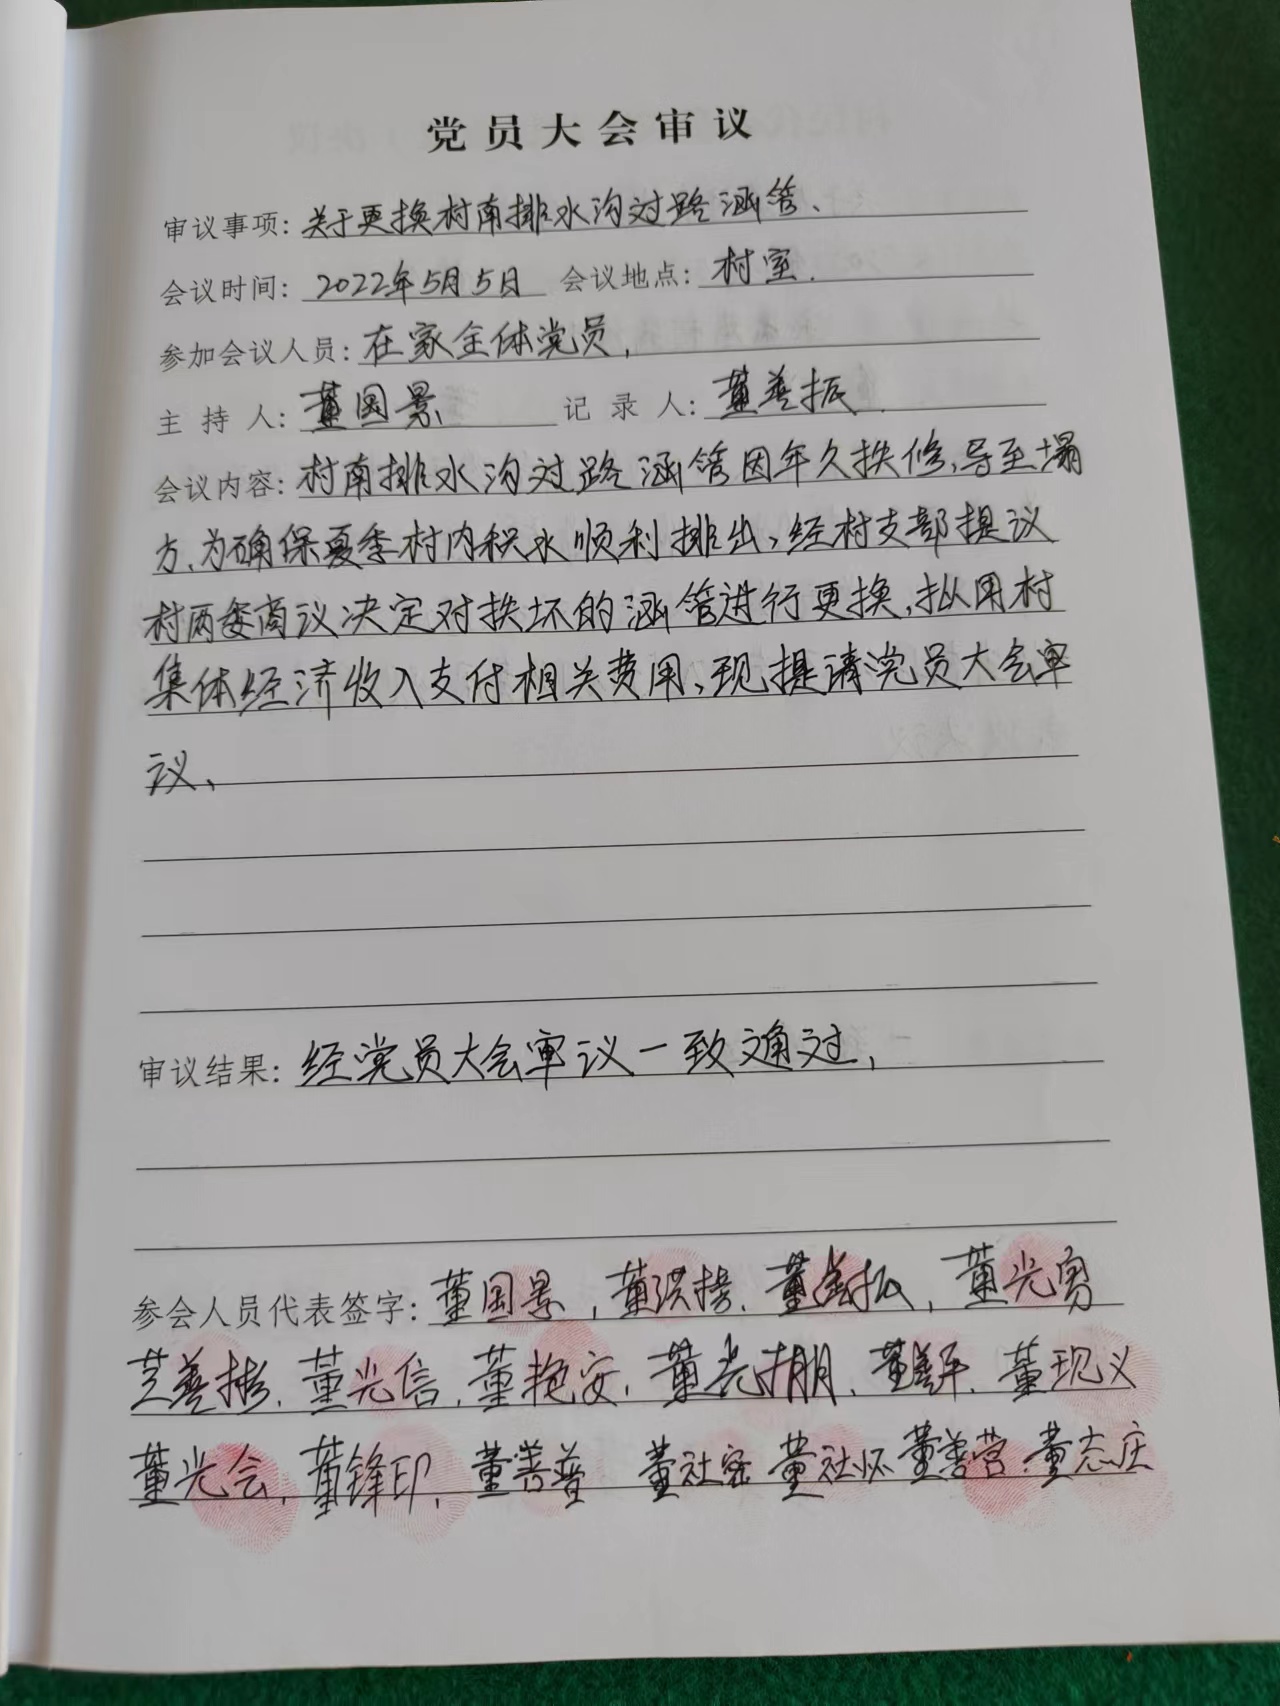 党员大会审议
审议事项: 关于更换村南排水沟过路涵管、
会议时间: 2022年5月5日 会议地点: 村室.
参加会议人员: 在家全体党员,
主持人: 董国景 记录人: 董善振
会议内容: 村南排水沟过路涵管因年久抶修,导至塌
方、为确保夏季村内积水顺利排出,经村支部提议
村两委商议决定对抶坏的涵管进行更换,拟用村
集体经济收入支付相关费用、现提请党员大会审
议、
审议结果: 经党员大会审议一致通过,
参会人员代表签字: 董国景, 董洪榜. 董善振, 董光勇
董善彬. 董光信, 董艳安. 董光朋. 董现义
董光会, 董锋印, 董善普 董社密 董社怀 董善营 董志庆